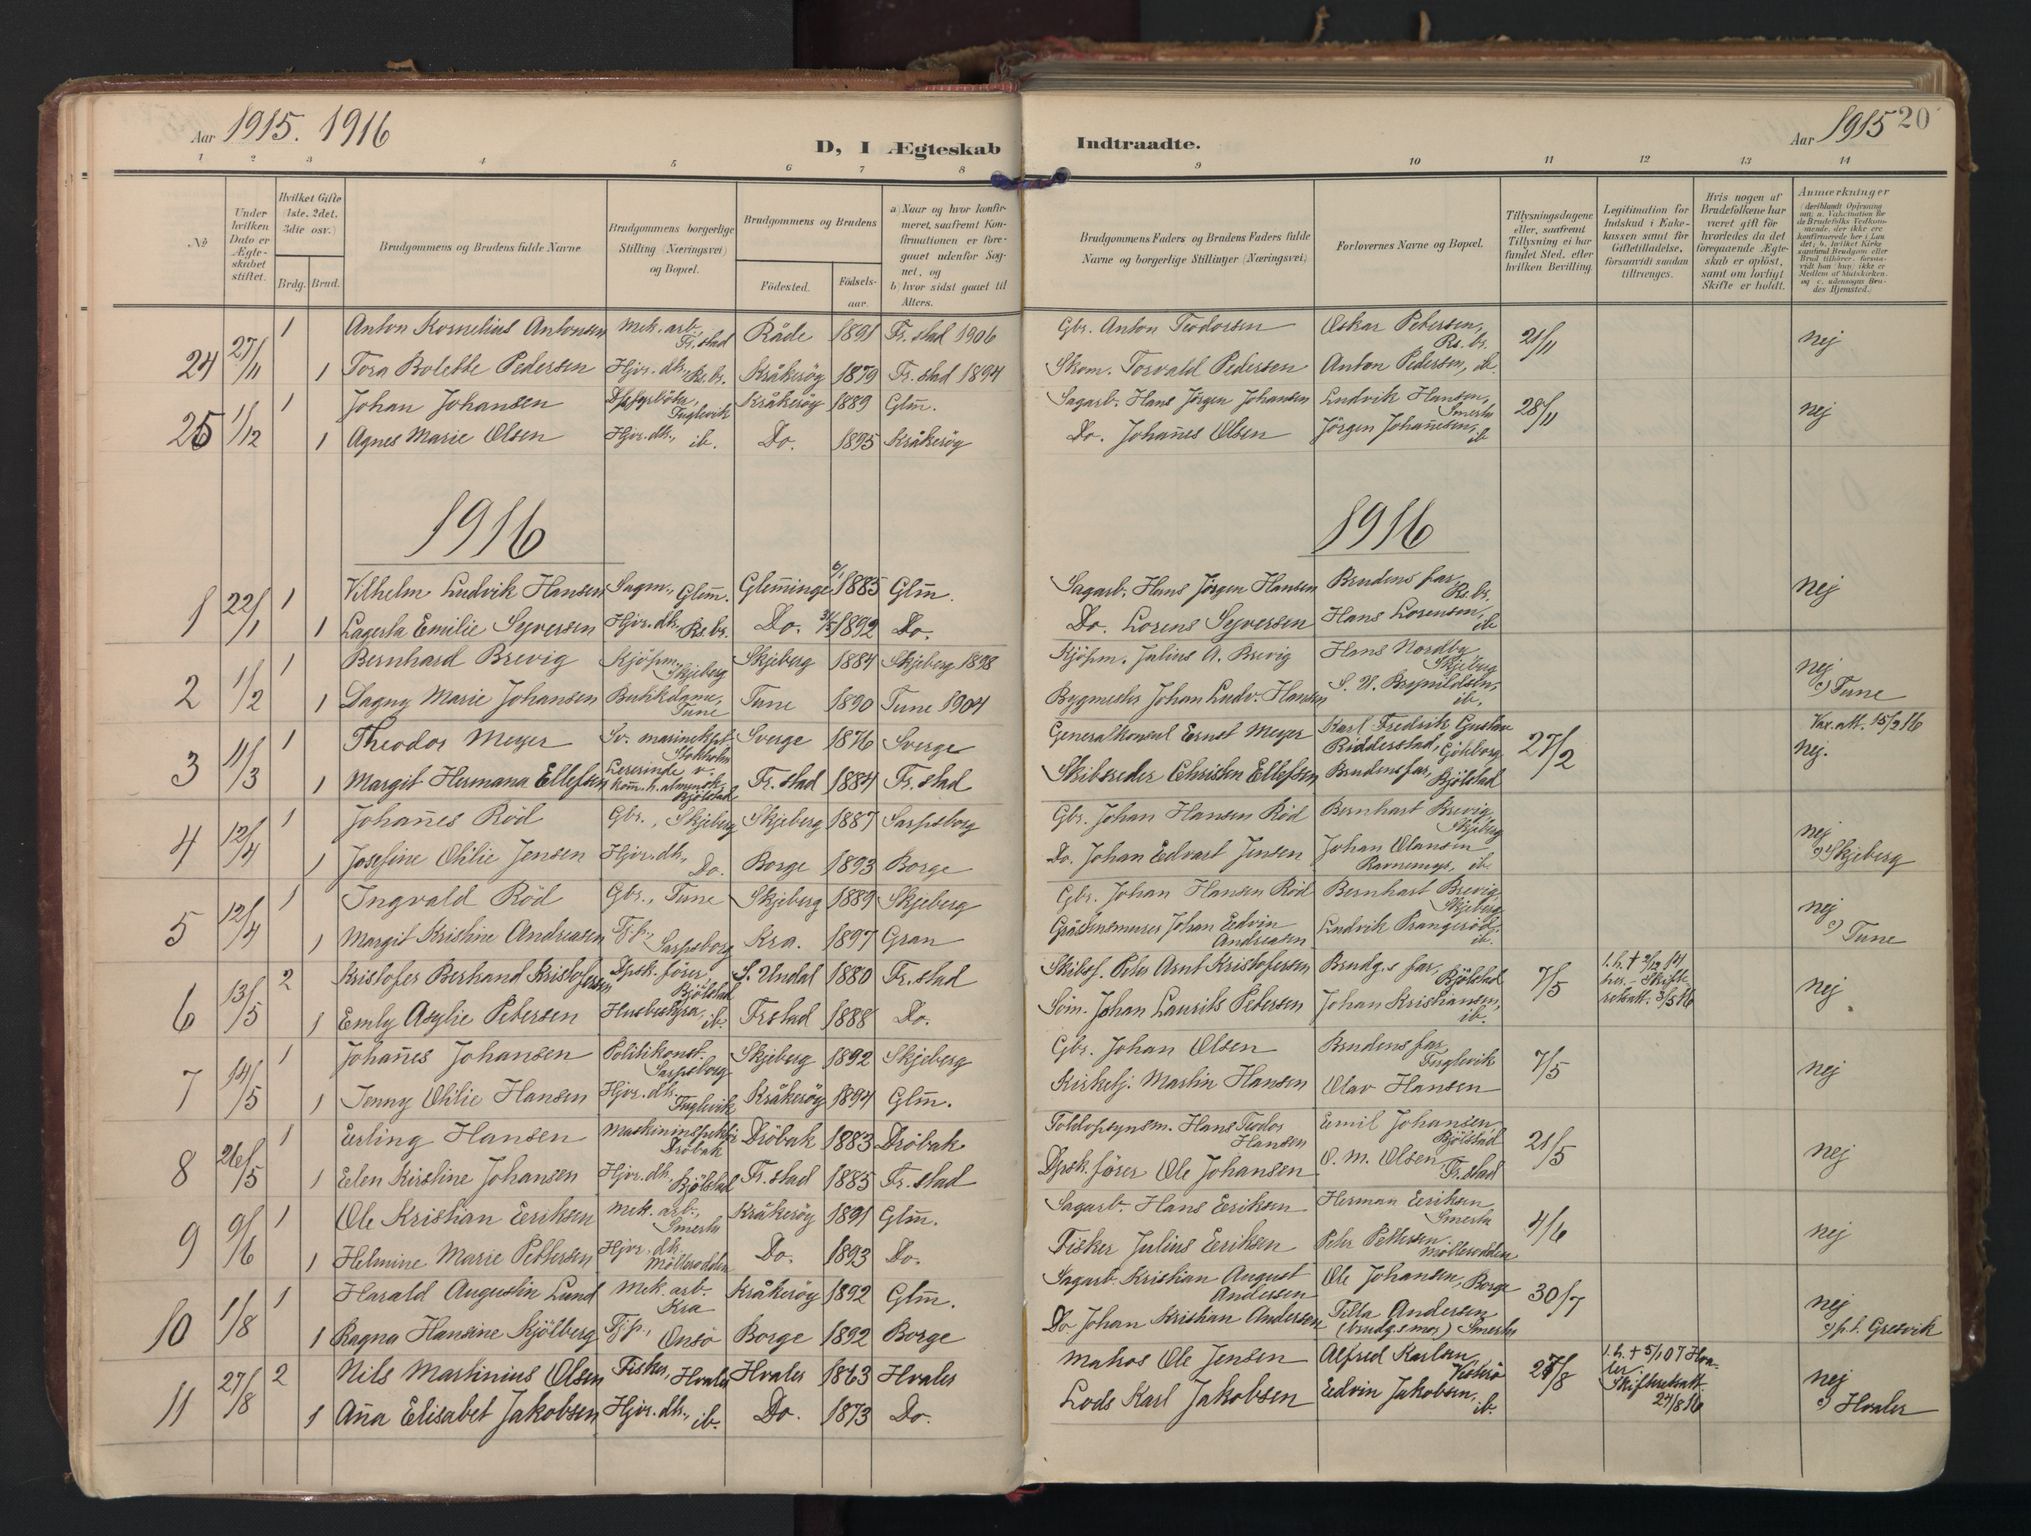 Aar 1915. 1916
D, I Ægteskab
Indtraadte.
Aar 1915
20
1 2 3 4 5 6 7 8 9 10 11 12 13 14
No
Under hvilken Dato er Ægteskabet stiftet.
Hvilket Gifte (1ste. 2det. 3die osv.)
Brdg. Brud.
Brudgommens og Brudens fulde Navne
Brudgommens borgerlige Stilling (Næringsvei) og Bopæl.
Brudgommens og Brudens
Fødested. Fødselsaar.
a) Naar og hvor konfirmeret, saafremt Konfirmationen er foregaaet udenfor Sognet, og
b) hvor sidst gaaet til Alters.
Brudgommens Faders og Brudens Faders fulde Navne og borgerlige Stillinger (Næringsvei)
Forlovernes Navne og Bopæl.
Tillysningsdagene eller, saafremt Tillysning ei har fundet Sted, efter hvilken Bevilling.
Legitimation for Indskud i Enkekassen samt for Giftetilladelse, forsaavidt saadan tiltrænges.
Hvis nogen af Brudefolkene har været gift før hvorledes da det foregaaende Ægteskab er opløst, samt om lovligt Skifte er holdt.
Anmærkninger
24 27/11 1 Anton Kornelius Antonsen Mek. arb. Fr.stad Råde 1891 Fr.stad 1906 Gbr. Anton Teodorsen Oskar Petersen, Rs.br. 21/11 nej
1 Tora Bolette Pedersen Hjv. dh., Rs.br. Kråkerøy 1879 Fr.stad 1894 Skom. Torvald Pedersen Anton Pedersen, ib.
25 1/12 1 Johan Johansen Fuglevik Kråkerøy 1889 Glm. Sagarb. Hans Jörgen Johansen Ludvik Hansen, Smerta 28/11 nej
1 Agnes Marie Olsen Hjv. dh., ib. Do. 1895 Kråkerøy Do. Johanes Olsen Jörgen Johanesen, ib
1916
1916
1 22/1 1 Vilhelm Ludvik Hansen Sagm., Glm. Gleminge 1885 Glm. Sagarb. Hans Jörgen Hansen Brudens far, Rs.br. nej
1 Lagerta Emilie Syversen Hjv. dh., Rs.br. Do. 1892 Do. Do. Lorens Syversen Hans Lorensen, ib
2 1/2 1 Bernhard Brevig Kjöpm., Skjeberg Skjeberg 1884 Skjeberg 1898 Kjöpm. Julius A. Brevig Hans Nordby Skjeberg nej
1 Dagny Marie Johansen Butikdame, Tune Tune 1890 Tune 1904 Bygmester Johan Ludv. Hansen S. U. Brynildsen, ib. c) Tune
3 11/3 1 Theodor Meyer Sv. marinekpt. Stokholm Sverge 1876 Sverge Generalkonsul Ernst Meyer Karl Fredrik Gustav Ridderstad, Göteborg 27/2 Vax.att. 15/2 16 nej.
1 Margit Hermana Ellefsen Lererinde v. kom. h. almensk. Bjölstad Fr.stad 1884 Fr.stad Skibsreder Christen Ellefsen Brudens far, Bjölstad
4 12/4 1 Johanes Röd Gbr., Skjeberg Skjeberg 1887 Sarpsborg Gbr. Johan Hansen Röd Bernhart Brevig, Skjeberg nej
1 Josefine Othlie Jensen Hjv. dh., Do. Borge 1893 Borge Do. Johan Edvart Jensen Johan Olausen Ravnemyr, ib. c) Skjeberg
5 12/4 1 Ingvald Röd Gbr., Tune Skjeberg 1889 Skjeberg Gbr. Johan Hansen Röd Bernhart Brevig, Skjeberg nej
1 Margit Kristine Andreasen Tjp., Sarpsborg Kra. 1897 Gran Gråstensmurer Johan Edvin Andreasen Ludvik Prangeröd, ib. c) Tune
6 13/5 2 Kristofer Berhand Kristofersen Dpsk.förer Bjölstad S. Undal 1880 Fr.stad Skibsf. Peter Arnt Kristofersen Brudg.s far, Bjölstad 7/5 1. h. + 2/12 14 her. – Skifteretsatt. 3/5 16 nej
1 Emly Asylie Petersen Husbestyra, ib. Frstad 1888 Do. Söm. Johan Laurits Petersen Johan Kristiansen, ib.
7 14/5 1 Johanes Johansen Politikonst. Sarpsborg Skjeberg 1892 Skjeberg Gbr. Johan Olsen Brudens far, Fuglevik 7/5 nej
1 Jenny Othlie Hansen Hjv. dh. Fuglevik Kråkerøy 1894 Glm. Kirketj. Martin Hansen Olav Hansen
8 26/5 1 Erling Hansen Maskininspektör Dröbak Dröbak 1883 Dröbak Toldopsynsm. Hans Teodor Hansen Emil Johansen, Bjölstad 21/5 nej
1 Elen Kirstine Johansen Hjv. dh., Bjölstad Fr.stad 1885 Fr.stad Dpsk.förer Ole Johansen O. M. Olsen, Fr.stad
9 9/6 1 Ole Kristian Eriksen Mek. arb., Smerta Kråkerøy 1891 Glm. Sagarb. Hans Eriksen Herman Eriksen Smerta 4/6 nej
1 Helmine Marie Pettersen Hjv. dh. Mölleradden Do. 1893 Do. Fisker Julius Eriksen Peter Pettersen Mölleradden
10 1/8 1 Harald Augustin Lund Mek. arb. Kra Kråkerøy 1892 Glm. Sagarb. Kristian August Andersen Ole Johansen, Borge 30/7 nej
1 Ragna Hansine Kjölberg Tjp., Onsö Borge 1892 Borge Do Johan Kristian Andersen Tilla Andersen (brudg.s mor) Smerta c) p.t. Gresvik
11 27/8 2 Nils Martinius Olsen Fisker, Hvaler Hvaler 1863 Hvaler Matros Ole Jensen Alfred Karlsen Vesterö 27/8 1. h. + 5/1 07 Hvaler Skifteretsatt. 24/8 16 nej
1 Ana Elisabet Jakobsen Hjv. dh., ib. Do. 1873 Do. Lods Karl Jakobsen Edvin Jakobsen, ib. c) Hvaler